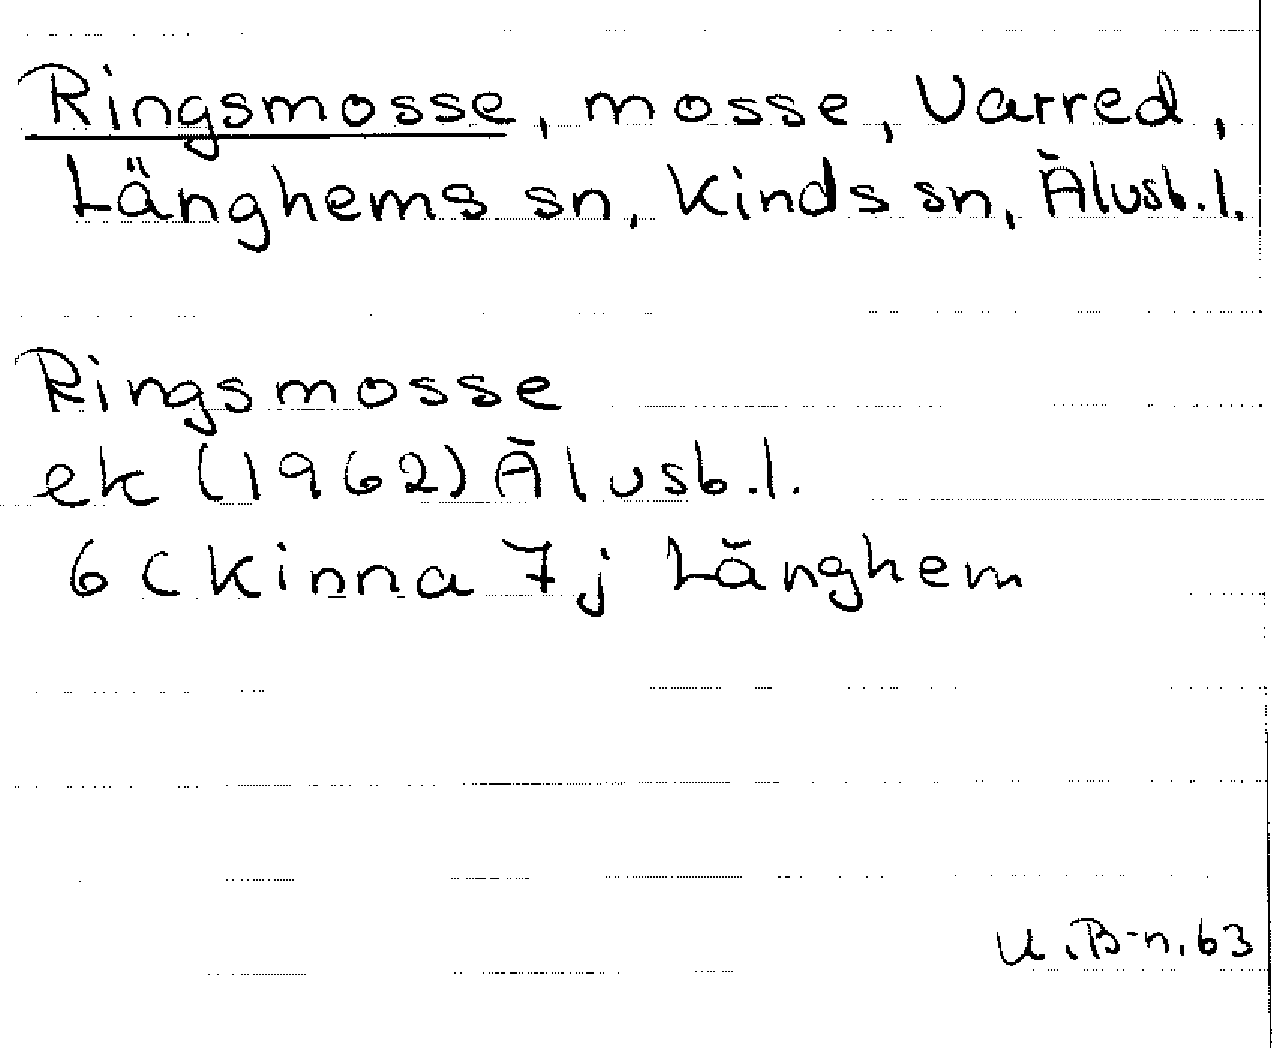 Ringsmosse, mosse, Varred,
Länghems sn, Kinds sn, Älvsb.l.
Ringsmosse
ek (1962) Älvsb.l.
6 C Kinna 7j Länghem
U.B-n.63